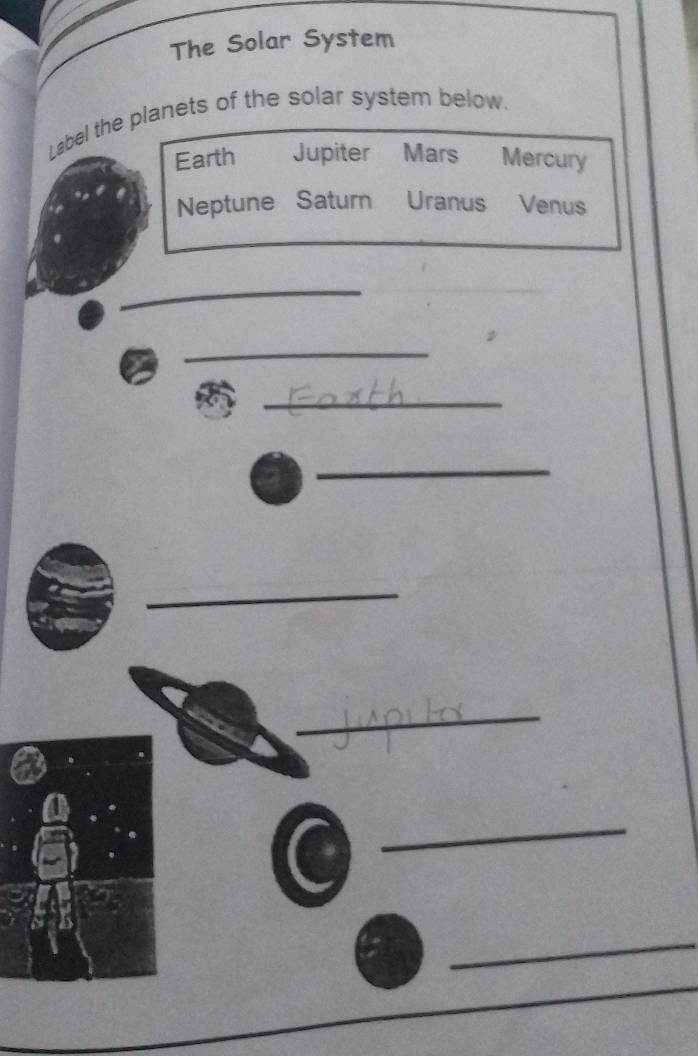 The Solar System
Label the planets of the solar system below.
Earth Jupiter Mars Mercury
Neptune Saturn Uranus Venus
Earth
jupitor